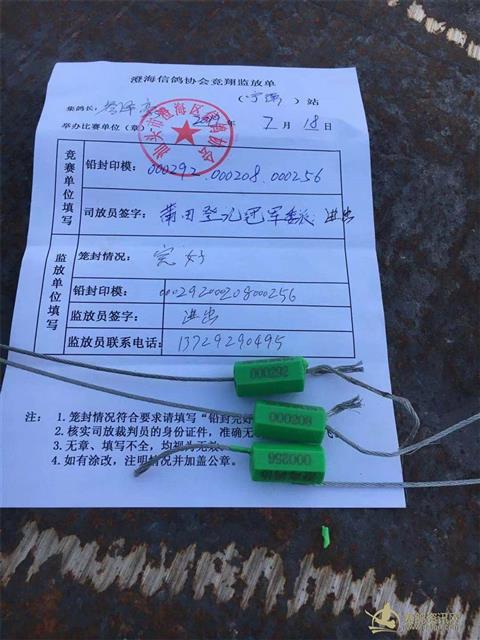 澄海信鸽协会竞翔监放单
集鸽长： （宁德）站
举办比赛单位（章）： 2019年 2月 18日
汕头市澄海区信鸽协会
竞赛单位填写
铅封印模： 000292.000208.000256
司放员签字： 莆田登记冠军委派 进出
监放单位填写
笼封情况： 完好
铅封印模： 000292000208000256
监放员签字： 进出
监放员联系电话： 13729290495
000292
000208
000256
注： 1. 笼封情况符合要求请填写“铅封完好
2. 核实司放裁判员的身份证件，准确无
3. 无章、填写不全，均视为无效
4. 如有涂改，注明情况并加盖公章。
赛鸽资讯网